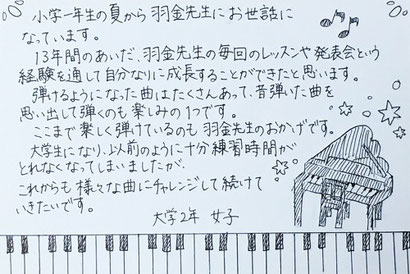 小学一年生の夏から羽金先生にお世話に
なっています。
13年間のあいだ、羽金先生の毎回のレッスンや発表会という
経験を通して自分なりに成長することができたと思います。
弾けるようになった曲はたくさんあって、昔弾いた曲を
思い出して弾くのも楽しみの1つです。
ここまで楽しく弾けているのも羽金先生のおかげです。
大学生になり、以前のように十分練習時間が
とれなくなってしまいましたが、
これからも様々な曲にチャレンジして続けて
いきたいです。
大学2年 女子